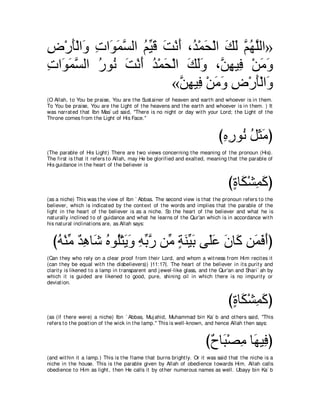 «اللَّهُمَّ لَكَ الْحَمْدُ، أَنْتَ قَيِّمُ السَّمَوَاتِ وَالْأَرْضِ
وَمَنْ فِيهِنَّ، وَلَكَ الْحَمْدُ أَنْتَ نُورُ السَّمَوَاتِ
وَالْأَرْضِ وَمَنْ فِيهِنَّ»
(O Allah, to You be praise, You are the Sustainer of heaven and earth and whoever is in them.
To You be praise, You are the Light of the heavens and the earth and whoever is in them. ) It
was narrated that Ibn Mas`ud said, "There is no night or day with your Lord; the Light of the
Throne comes from the Light of His Face."
(مَثَلُ نُورِهِ)
(The parable of His Light) There are two views concerning the meaning of the pronoun (His).
The first is that it refers to Allah, may He be glorified and exalted, meaning that the parable of
His guidance in the heart of the believer is
(كَمِشْكَاةٍ)
(as a niche) This was the view of Ibn `Abbas. The second view is that the pronoun refers to the
believer, which is indicated by the context of the words and implies that the parable of the
light in the heart of the believer is as a niche. So the heart of the believer and what he is
naturally inclined to of guidance and what he learns of the Qur'an which is in accordance with
his natural inclinations are, as Allah says:
(أَفَمَن كَانَ عَلَى بَيِّنَةٍ مِّن رَّبِّهِ وَيَتْلُوهُ شَاهِدٌ مِّنْهُ)
(Can they who rely on a clear proof from their Lord, and whom a witness from Him recites it
(can they be equal with the disbelievers)) (11:17). The heart of the believer in its purity and
clarity is likened to a lamp in transparent and jewel-like glass, and the Qur'an and Shari`ah by
which it is guided are likened to good, pure, shining oil in which there is no impurity or
deviation.
(كَمِشْكَاةٍ)
(as (if there were) a niche) Ibn `Abbas, Mujahid, Muhammad bin Ka`b and others said, "This
refers to the position of the wick in the lamp." This is well-known, and hence Allah then says:
(فِيهَا مِصْبَاحٌ)
(and within it a lamp.) This is the flame that burns brightly. Or it was said that the niche is a
niche in the house. This is the parable given by Allah of obedience towards Him. Allah calls
obedience to Him as light, then He calls it by other numerous names as well. Ubayy bin Ka`b